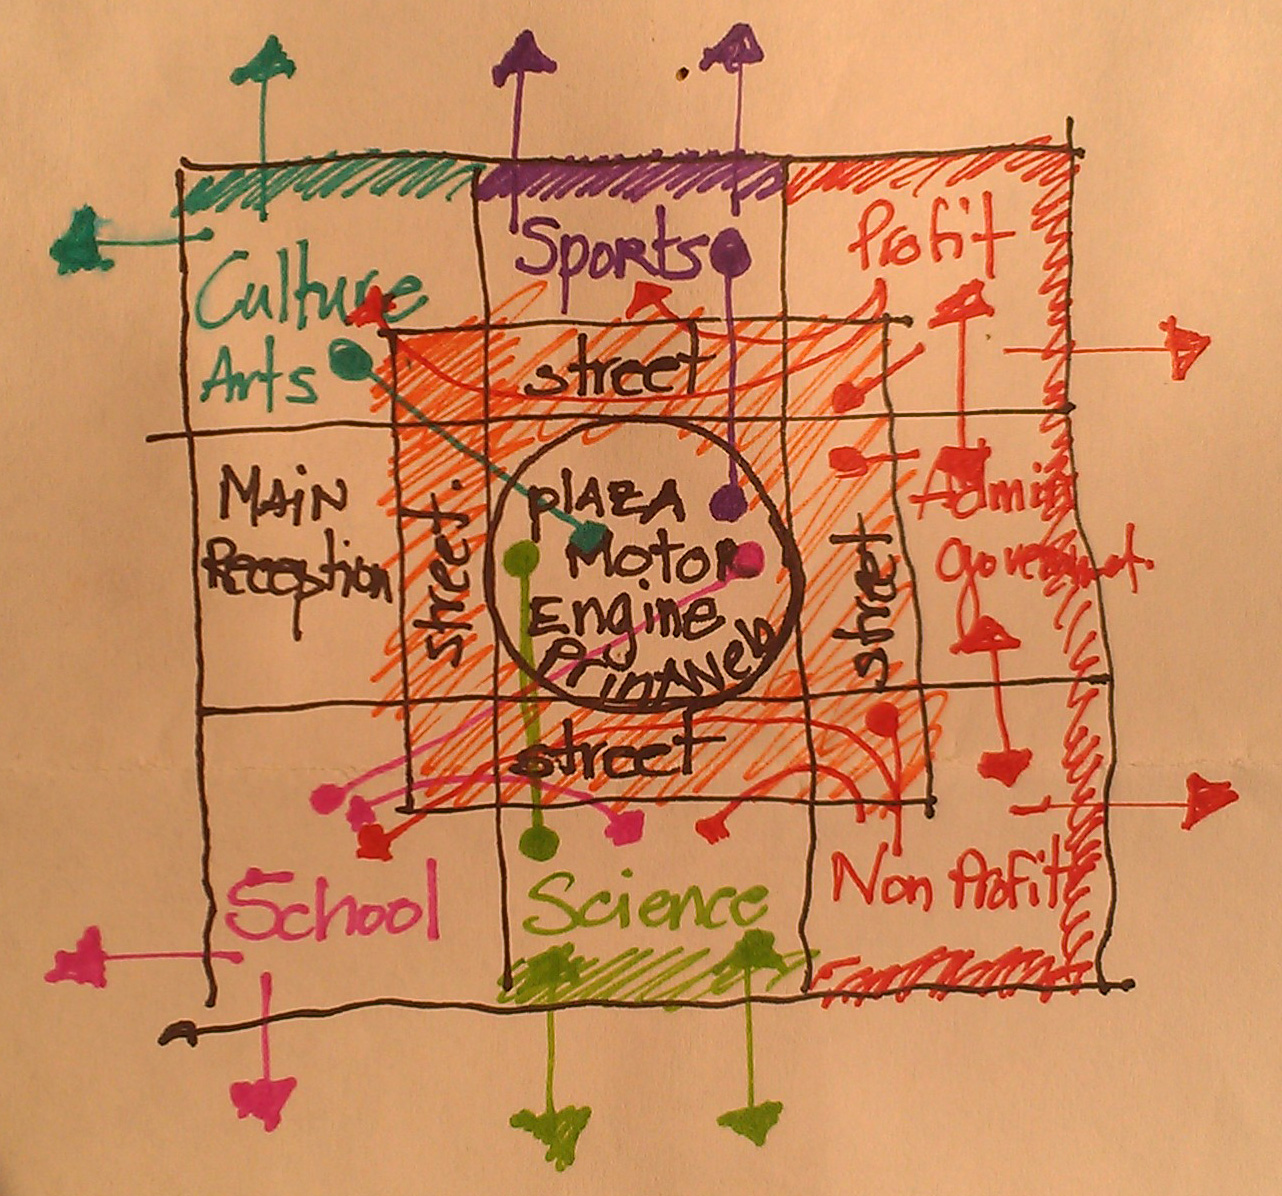 Sports
Profit
Culture
Arts
street
MAIN
Reception
street.
plAZA
Motor
Engine
street
Admin
government.
street
School
Science
Non Profit